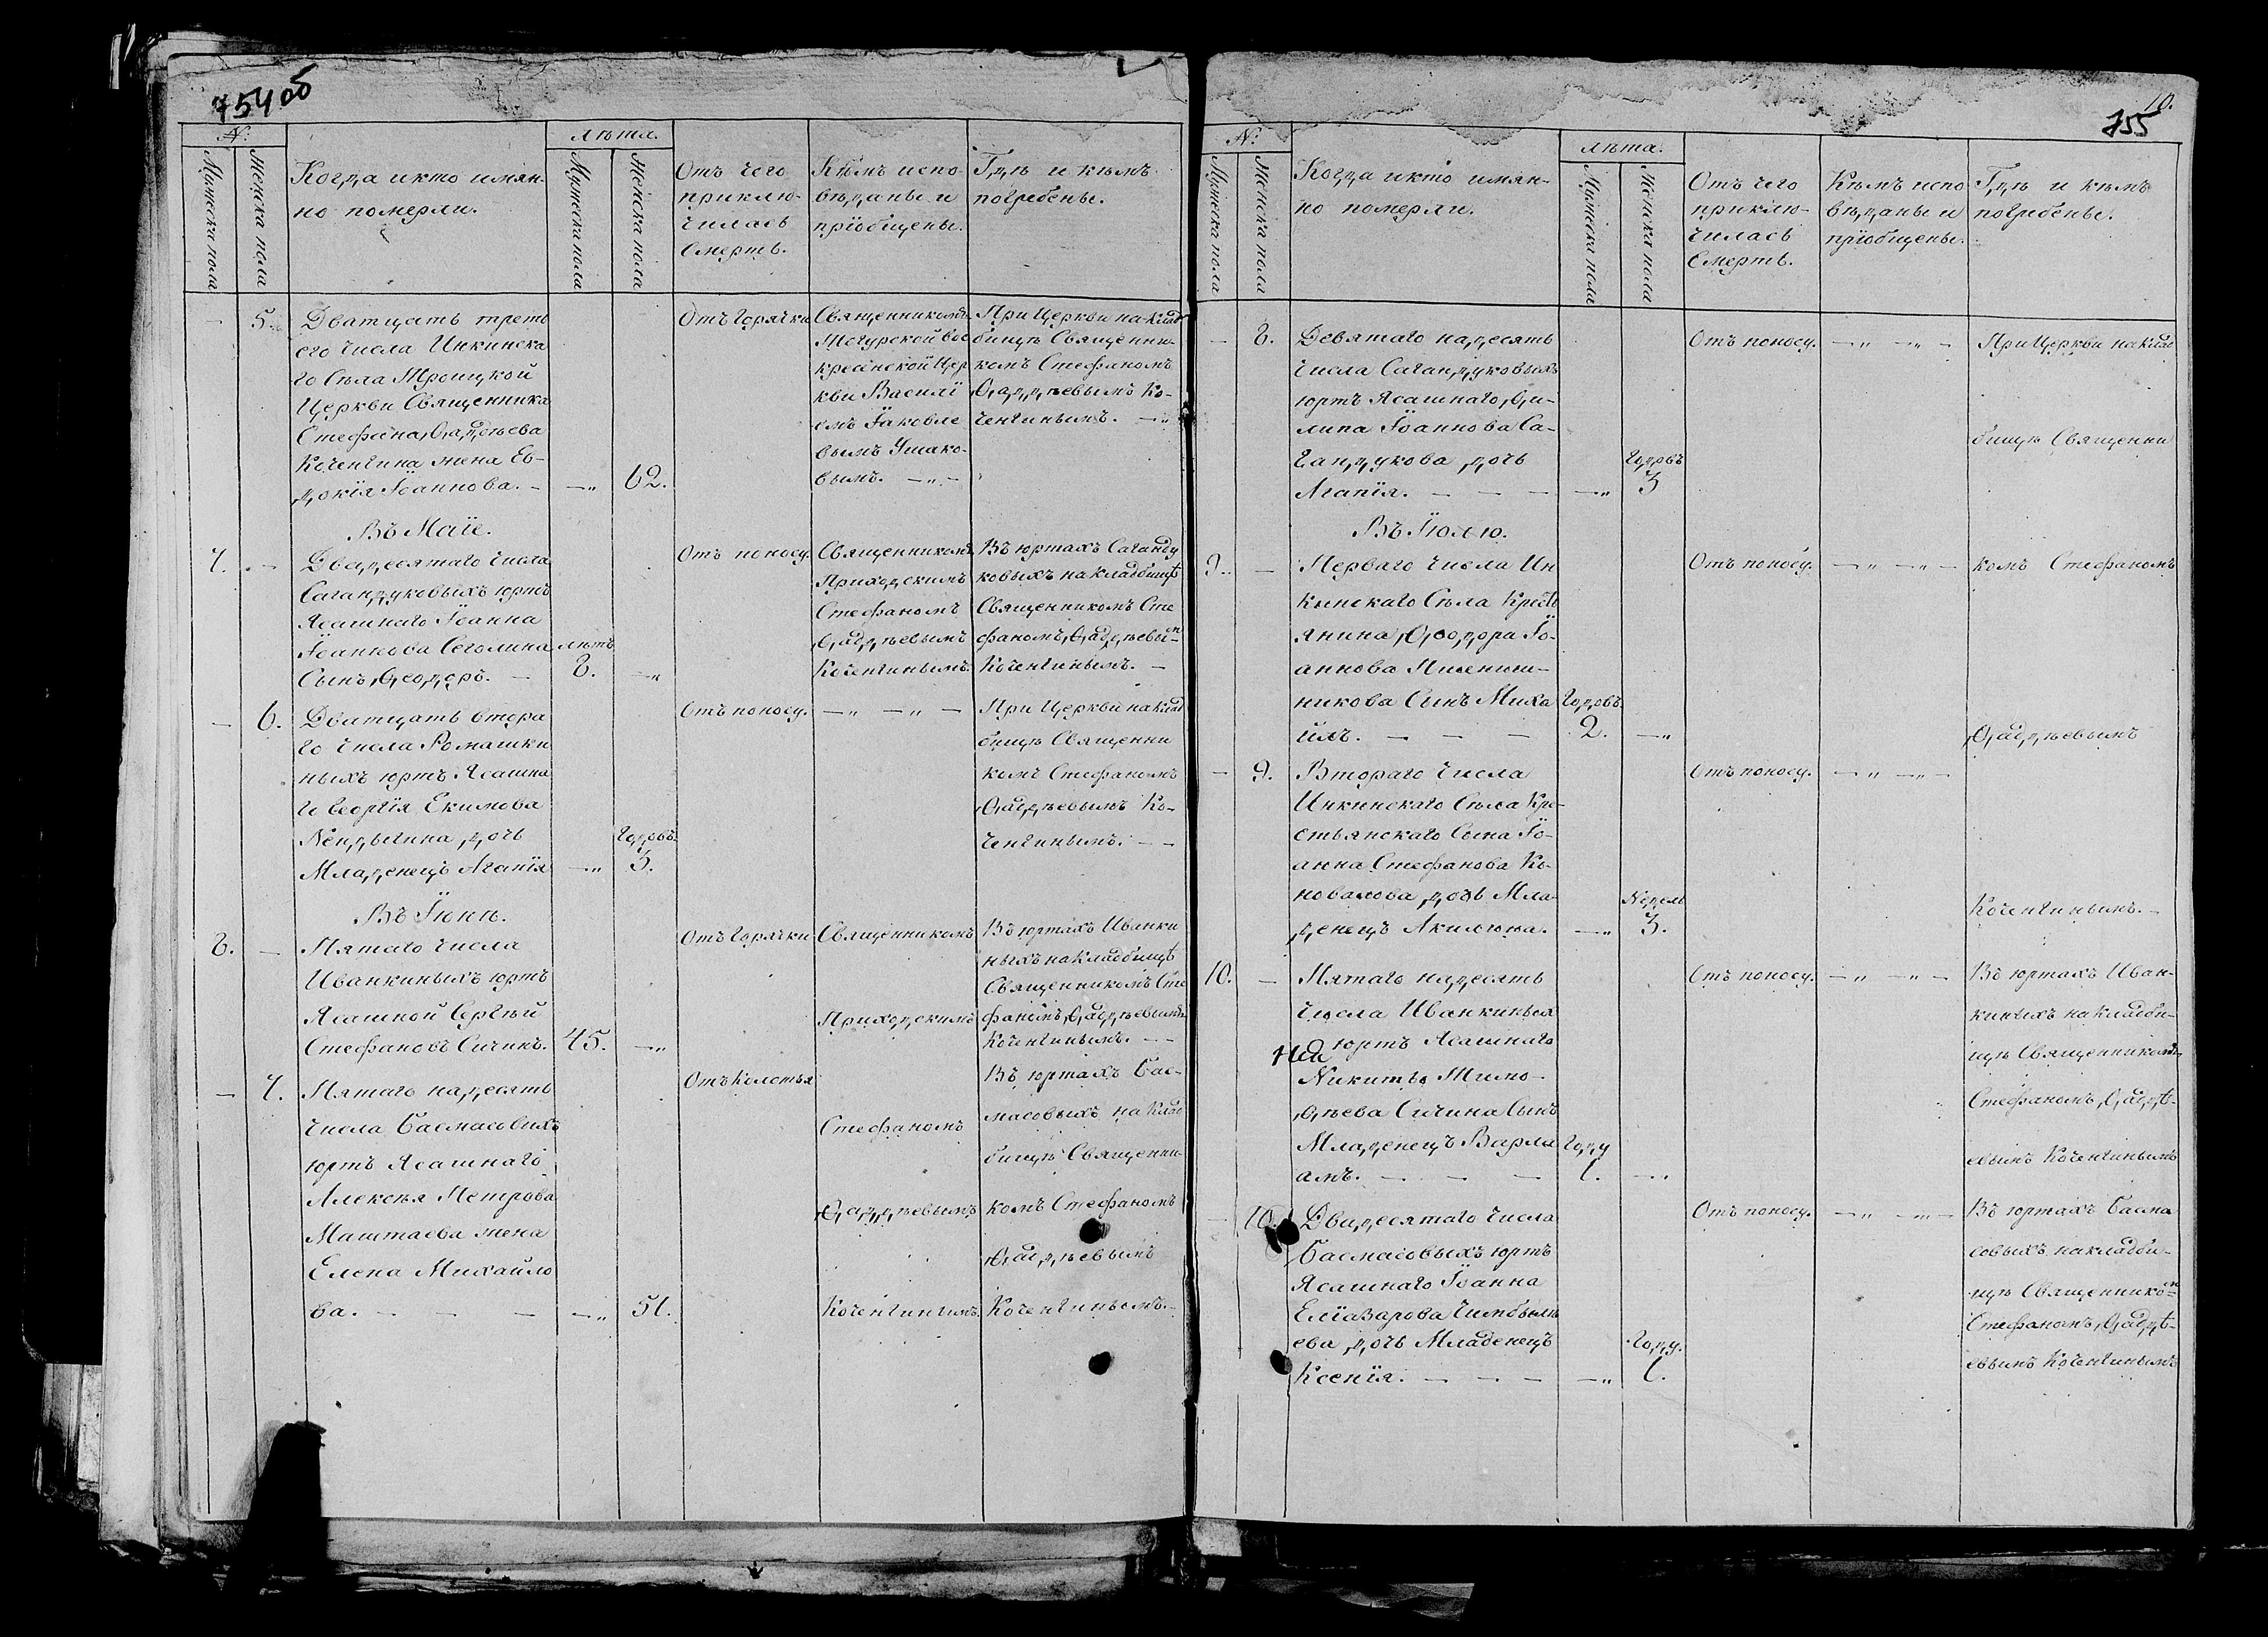 754 об
№:
лѣта.
Мужеска пола
Женска пола
Когда и кто имян-
но померли.
Мужеска пола
Женска пола
Отъ чего
приклю-
чилась
смерть.
Кѣмъ испо-
вѣданы и
пріобщены.
Гдѣ и кѣмъ
погребены.
— 5.
Дватцать треть
его числа Инкинска
го Села Троицкой
Церкви Священника
Стефана Ѳаддѣева
Коченгина жена Ев-
докія Іоаннова. — —„ 62.
Отъ горячки
Священникомъ
Тогурской вос
кресенской Цер
кви Василі
емъ Іаковле
вымъ Ушако-
вымъ. —„—
При Церкви на клад
бищѣ Священни-
комъ Стефаномъ
Ѳаддѣевымъ Ко-
ченгинымъ. —„
Въ Маіе.
7. —
Двадесятаго числа
Сагандуковыхъ юртъ
Ясашнаго Іоанна
Іоаннова Сеголина
Сынъ Ѳеодоръ. —
лѣтъ
8. —„
Отъ поносу.
Священникомъ
Приходскимъ
Стефаномъ
Ѳаддѣевымъ
Коченгинымъ.
Въ юртахъ Саганду
ковыхъ на кладбищѣ
Священникомъ Сте
фаномъ Ѳаддѣевым
Коченгинымъ. —
— 6.
Дватцать втора
го числа Ромашки
ныхъ юртъ Ясашна
го Георгія Екимова
Кендыгина дочь
Младенецъ Агапія
годовъ.
—„ 3.
Отъ поносу. —„ —„ —
При Церкви на клад
бищѣ Священни
комъ Стефаномъ
Ѳаддѣевымъ Ко-
ченгинымъ. — —
Въ Іюнѣ.
8. —
Пятаго числа
Иванкиныхъ юртъ
Ясашной Сергѣй
Стефановъ Сичинъ. 45. —„
Отъ горячки
Священникомъ
Приходскимъ
Въ юртахъ Иванки
ныхъ на кладбищѣ
Священникомъ Сте
фаномъ Ѳаддѣевымъ
Коченгинымъ. — —
— 7.
Пятаго надесять
числа Басмасовыхъ
юртъ Ясашнаго
Алексѣя Петрова
Маштаева жена
Елена Михайло
ва. — — — —„ 51.
Отъ колотья
Стефаномъ
Ѳаддѣевымъ
Коченгинымъ.
Въ юртахъ Бас-
масовыхъ на клад
бищѣ Священни-
комъ Стефаномъ
Ѳаддѣевымъ
Коченгинымъ. —
10.
755
№:
лѣта.
Мужеска пола
Женска пола
Когда и кто имян-
но померли.
Мужеска пола
Женска пола
Отъ чего
приклю-
чилась
Смерть.
Кѣмъ испо
вѣданы и
пріобщены.
Гдѣ и кѣмъ
погребены.
— 8.
Девятаго надесять
числа Сагандуковыхъ
юртъ Ясашнаго Фи-
липа Іоаннова Са-
гандукова дочь
Агапія. — — —
годовъ
—„ 3
Отъ поносу. —„ —„ —
При Церкви на клад
бищѣ Священни
Въ Іюлю.
9. —
Перваго числа Ин
кинскаго Села Кресть
янина Ѳеодора Іо-
аннова Пшенич-
никова Сынъ Миха
илъ. — — —
годовъ
2. —„
Отъ поносу. —„ —„ —
комъ Стефаномъ
Ѳаддѣевымъ
— 9.
Втораго числа
Инкинскаго Села Кре-
стьянскаго Сына Іо-
анна Стефанова Ко-
новалова дочь Мла-
денецъ Акилина.
Недель
—„ 3.
Отъ поносу. —„ —„ —
Коченгинымъ. —
10. —
Пятаго надесять
числа Иванкиных
юртъ Ясашнаго
Никиты Тимо-
ѳѣева Сичина Сынъ
Младенецъ Варла
амъ. — — —
году
1. —„
Отъ поносу. —„ —„ —
Въ юртахъ Иван-
киныхъ на кладби-
щѣ Священникомъ
Стефаномъ Ѳаддѣ-
евымъ Коченгинымъ
— 10.
Двадесятаго числа
Басмасовыхъ юртъ
Ясашнаго Іоанна
ева дочь Младенецъ
Ксенія. — — —
году.
—„ 1.
Отъ поносу. —„ —„ —
Въ юртахъ Басма
совыхъ на кладби-
щѣ Священником
Стефаномъ Ѳаддѣ-
евымъ Коченгинымъ